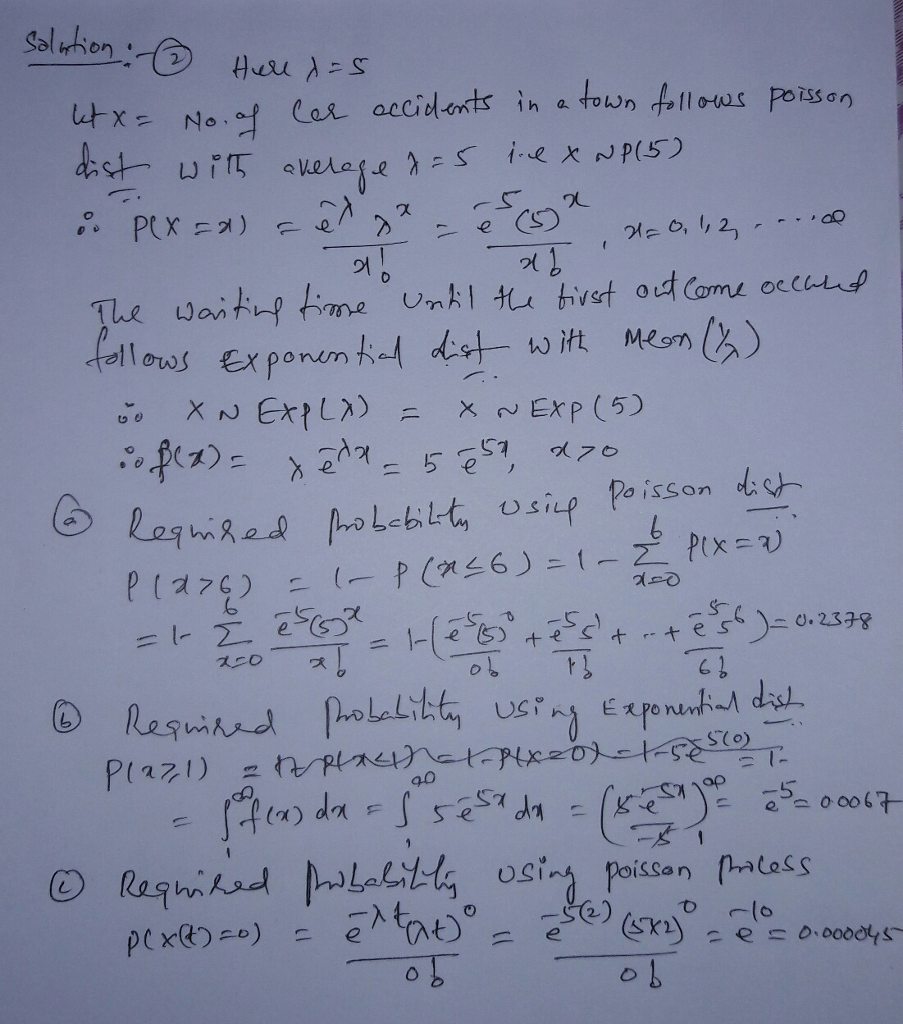 Solution :- ②
Here λ = 5
Let x = No. of Car accidents in a town follows poisson
dist with average λ = 5 i.e x ~ P(5)
∴ P(X = x) = e^-λ λ^x / x! = e^-5 (5)^x / x! , x = 0, 1, 2, ----- ∞
The waiting time until the first outcome occured
follows Exponential dist with Mean (1/λ)
∴ X ~ EXP(λ) = X ~ EXP(5)
∴ f(x) = λ e^-λx = 5 e^-5x, x > 0
ⓐ Required probability using poisson dist
P(x>6) = 1 - P(x≤6) = 1 - Σ_{x=0}^{6} P(X = x)
= 1 - Σ_{x=0}^{6} e^-5 (5)^x / x! = 1 - (e^-5 (5)^0 / 0! + e^-5 5^1 / 1! + -- + e^-5 5^6 / 6!) = 0.2378
ⓑ Required probability using Exponential dist
P(x≥1) = 1- P(x<1) = 1-P(x=0) = 1-5e^-5(0) = 1-
= ∫_1^∞ f(x) dx = ∫_1^∞ 5 e^-5x dx = (5 e^-5x / -5)_1^∞ = e^-5 = 0.0067
ⓒ Required probability using poisson process
P(X(t)=0) = e^-λt (λt)^0 / 0! = e^-5(2) (5×2)^0 / 0! = e^-10 = 0.000045